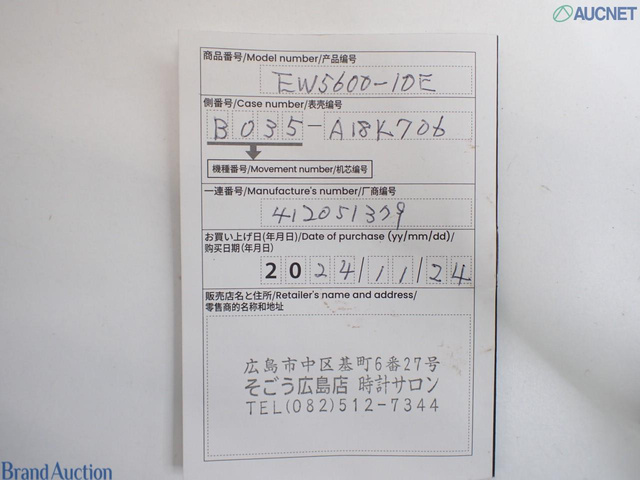 AUCNET
商品番号/Model number/产品编号
EW5600-10E
側番号/Case number/表壳编号
B035-A18K706
機種番号/Movement number/机芯编号
一連番号/Manufacture's number/厂商编号
412051379
お買い上げ日(年月日)/Date of purchase (yy/mm/dd)/
购买日期(年月日)
2024/11/24
販売店名と住所/Retailer's name and address/
零售商的名称和地址
広島市中区基町6番27号
そごう広島店 時計サロン
TEL(082)512-7344
Brand Auction